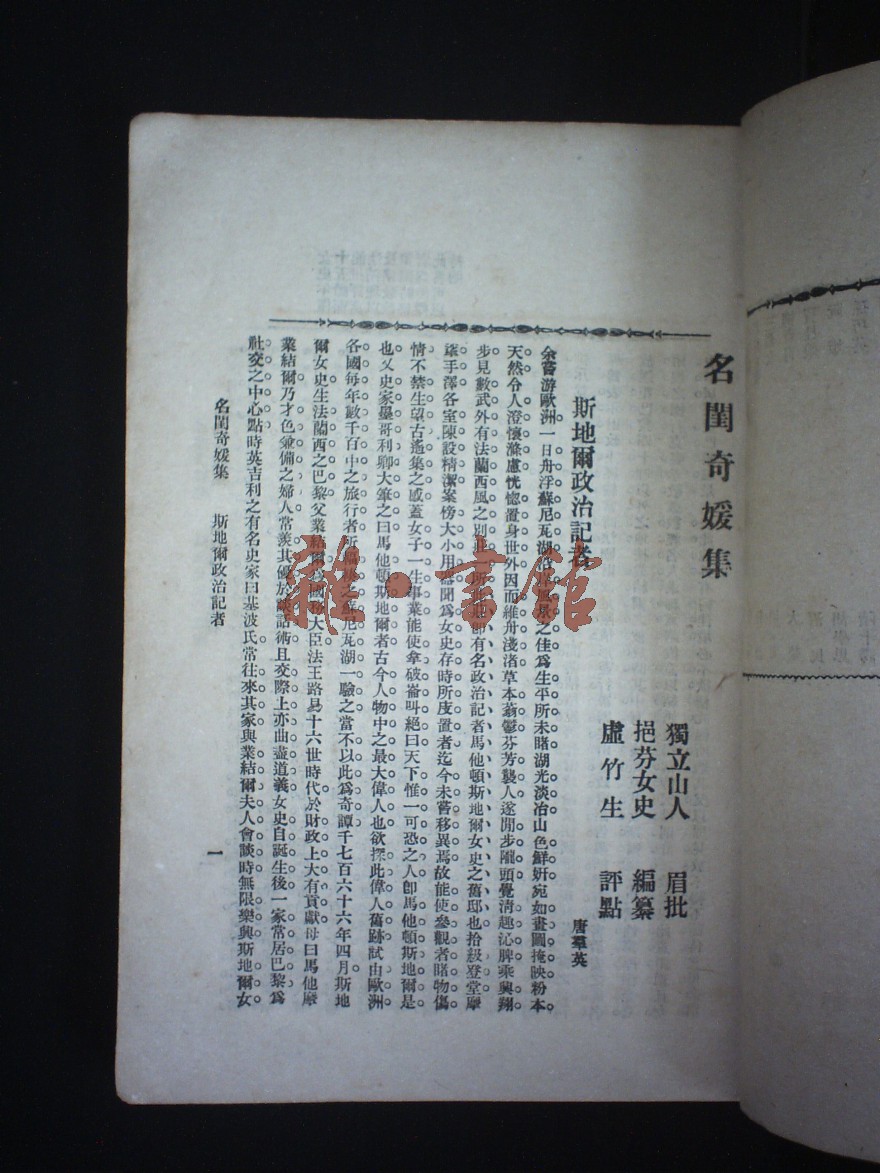 名閨奇媛集
獨立山人 眉批
挹芬女史 編纂
盧竹生 評點
斯地爾政治記者 唐羣英
余嘗游歐洲一日舟浮蘇尼瓦湖沿岸風景之佳爲生平所未睹湖光淡冶山色鮮妍宛如畫圖掩映粉本
天然令人澄懷滌慮恍惚置身世外因而維舟淺渚草木蓊鬱芬芳襲人遂閒步隴頭覺清趣沁脾乘興翔
步見數武外有法蘭西風之別 所此地即有名政治記者馬他頓斯地爾女史之舊邸也拾級登堂摩
挲手澤各室陳設精潔案榜大小用器聞爲女史存時所庋置者迄今未嘗移異焉故能使參觀者睹物傷
情不禁生望古遙集之感蓋女子一生事業能使拿破崙叫絕曰天下惟一可恐之人卽馬他頓斯地爾是
也又史家壘哥利聊大筆之曰馬他頓斯地爾者古今人物中之最大偉人也欲探此偉人舊跡試由歐洲
各國每年數千百中之旅行者所 之蘇尼瓦湖一驗之當不以此爲奇譚千七百六十六年四月斯地
爾女史生法蘭西之巴黎父業結爾爲國務大臣法王路易十六世時代於財政上大有貢獻母曰馬他摩
業結爾乃才色兼備之婦人常羨其優於談話術且交際上亦曲盡道義女史自誕生後一家常居巴黎爲
社交之中心點時英吉利之有名史家曰基波氏常往來其家與業結爾夫人會談時無限樂興斯地爾女
名閨奇媛集 斯地爾政治記者
一
雜·書館